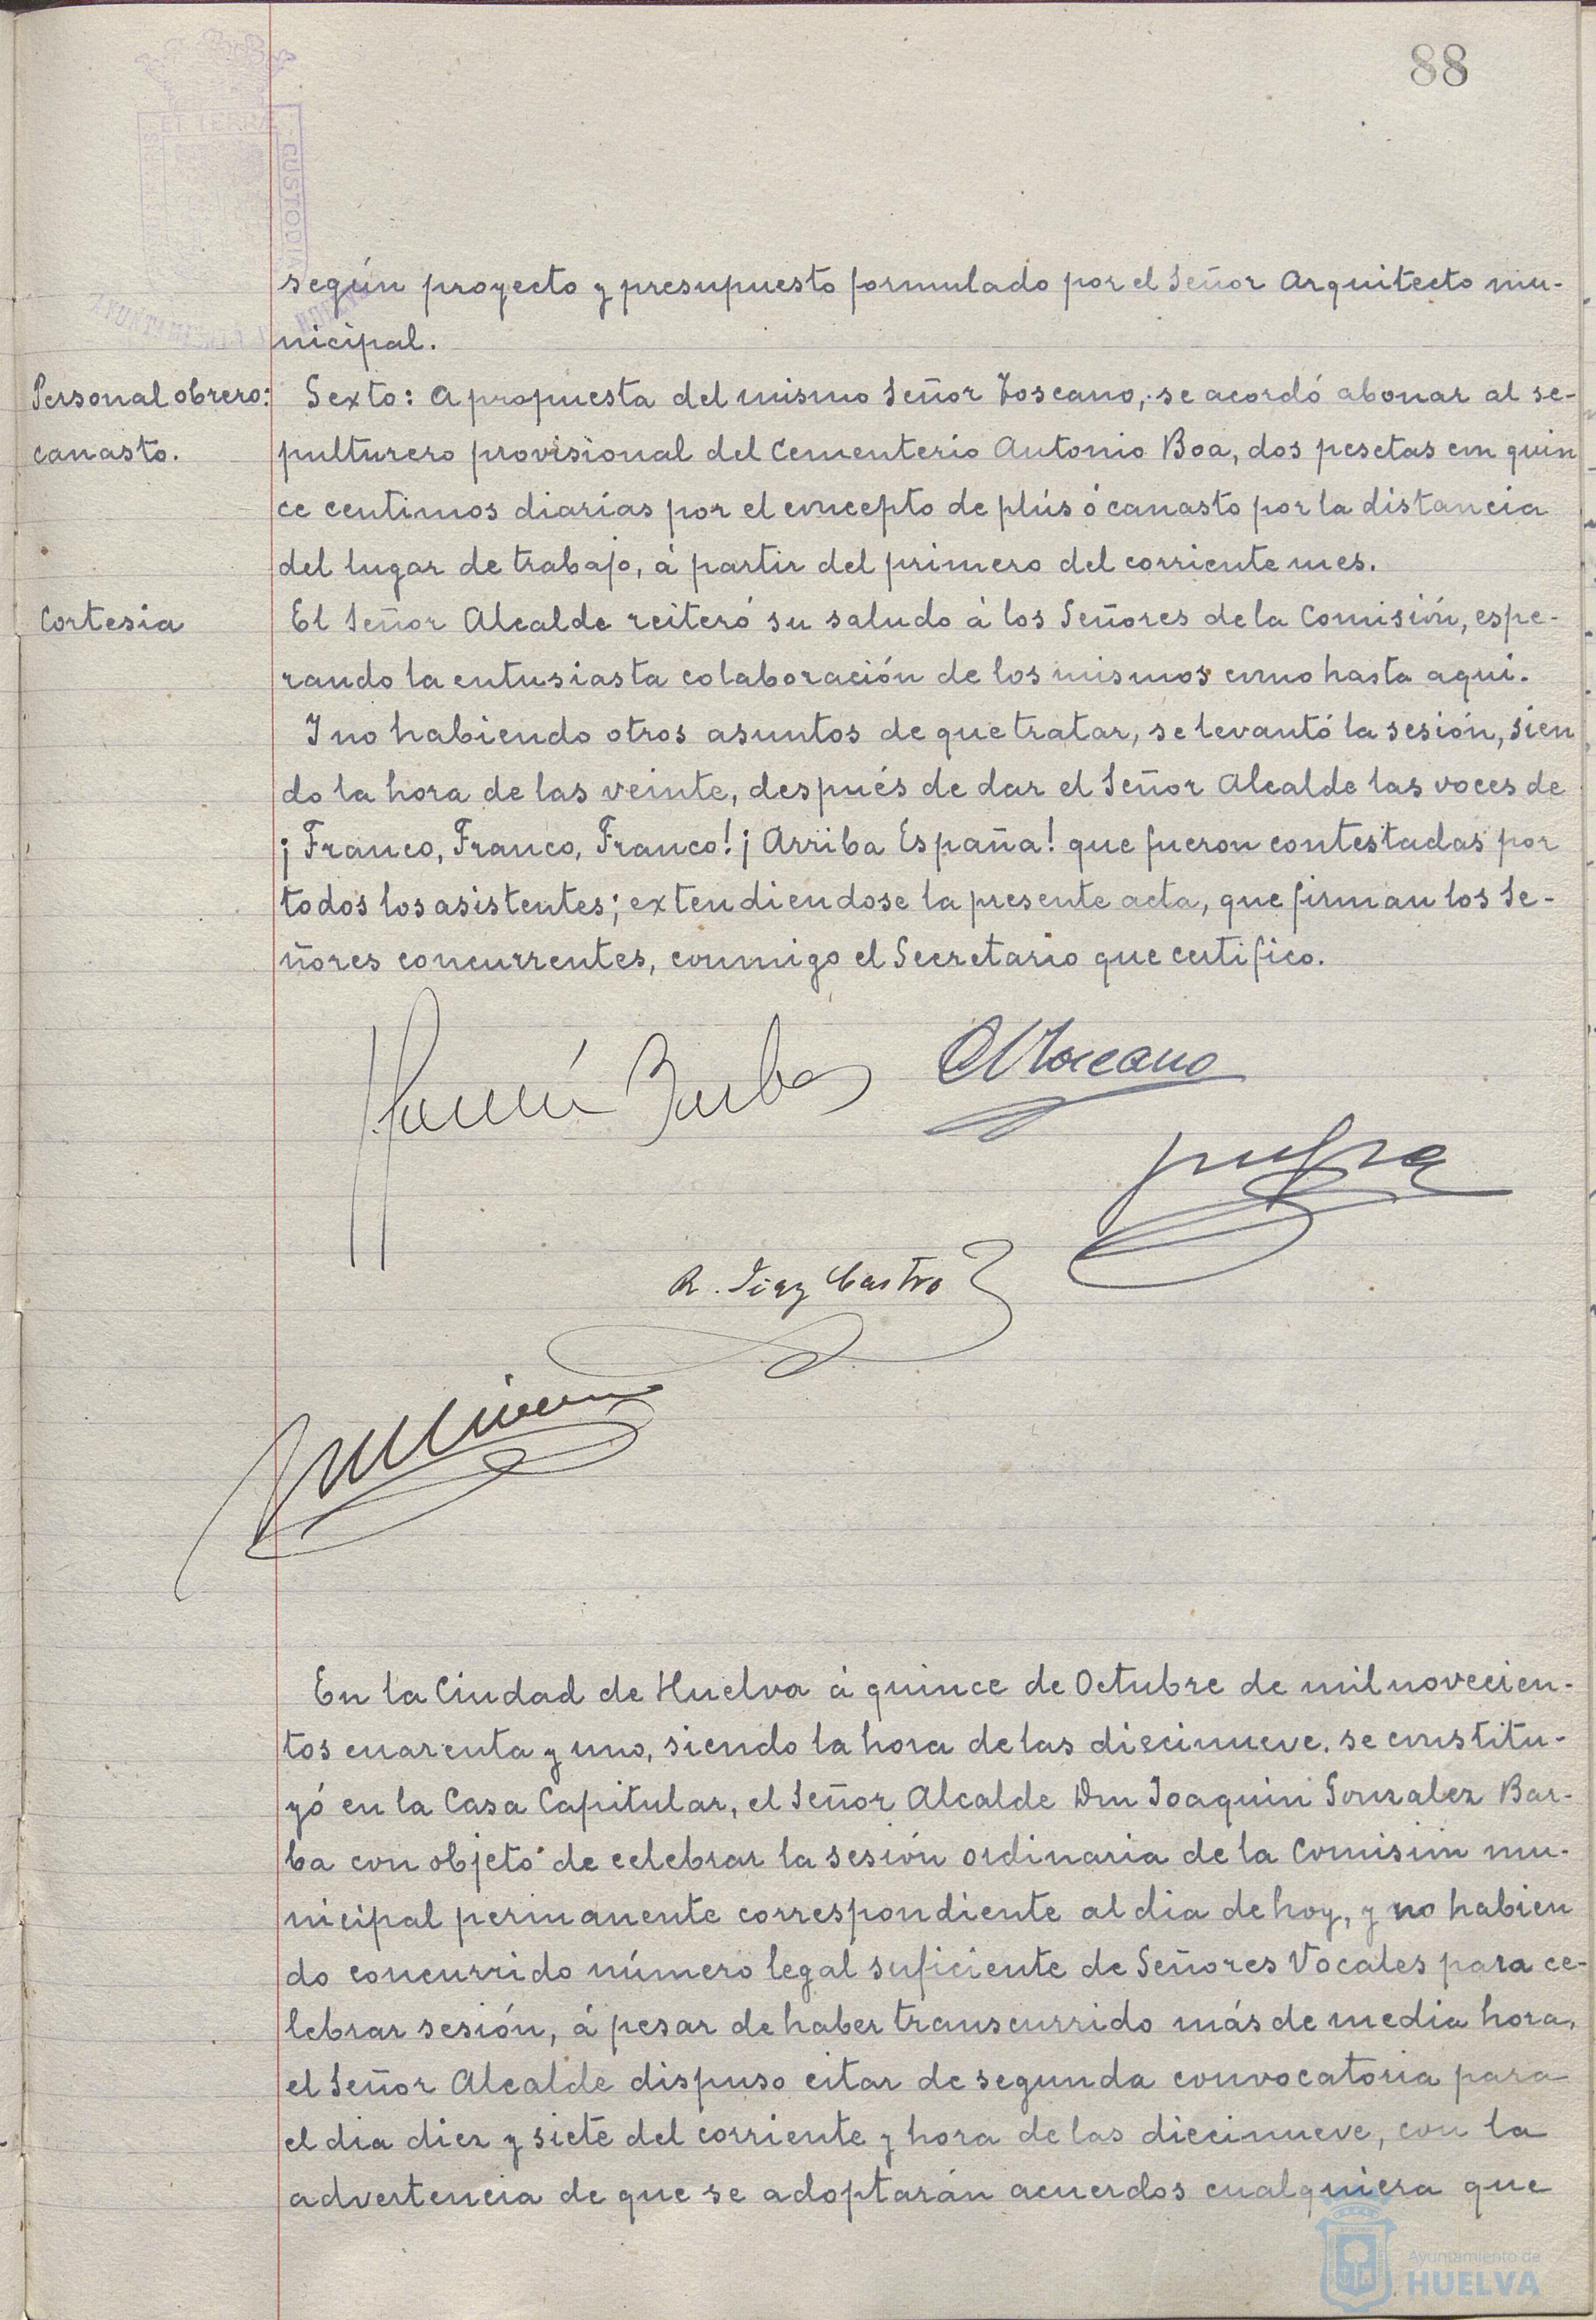 88
ET TERRA
CUSTODIA
según proyecto y presupuesto formulado por el Señor Arquitecto mu-
nicipal.
Personal obrero: Sexto: A propuesta del mismo Señor Toscano, se acordó abonar al se-
canasto. pulturero provisional del Cementerio Antonio Boa, dos pesetas con quin
ce centimos diarias por el concepto de plús ó canasto por la distancia
del lugar de trabajo, á partir del primero del corriente mes.
Cortesia El Señor Alcalde reiteró su saludo á los Señores de la Comisión, espe-
rando la entusiasta colaboración de los mismos como hasta aqui.
Y no habiendo otros asuntos de que tratar, se levantó la sesión, sien
do la hora de las veinte, después de dar el Señor Alcalde las voces de
¡Franco, Franco, Franco! ¡Arriba España! que fueron contestadas por
todos los asistentes; extendiendose la presente acta, que firman los Se-
ñores concurrentes, conmigo el Secretario que certifico.
R. Diaz Castro
En la Ciudad de Huelva á quince de Octubre de mil novecien-
tos cuarenta y uno, siendo la hora de las diecinueve. se constitu-
yó en la Casa Capitular, el Señor Alcalde Don Joaquin Gonzalez Bar-
ba con objeto de celebrar la sesión ordinaria de la Comisión mu-
nicipal permanente correspondiente al dia de hoy, y no habien
do concurrido número legal suficiente de Señores Vocales para ce-
lebrar sesión, á pesar de haber transcurrido más de media hora,
el Señor Alcalde dispuso citar de segunda convocatoria para
el dia diez y siete del corriente y hora de las diecinueve, con la
advertencia de que se adoptarán acuerdos cualquiera que
Ayuntamiento de
HUELVA